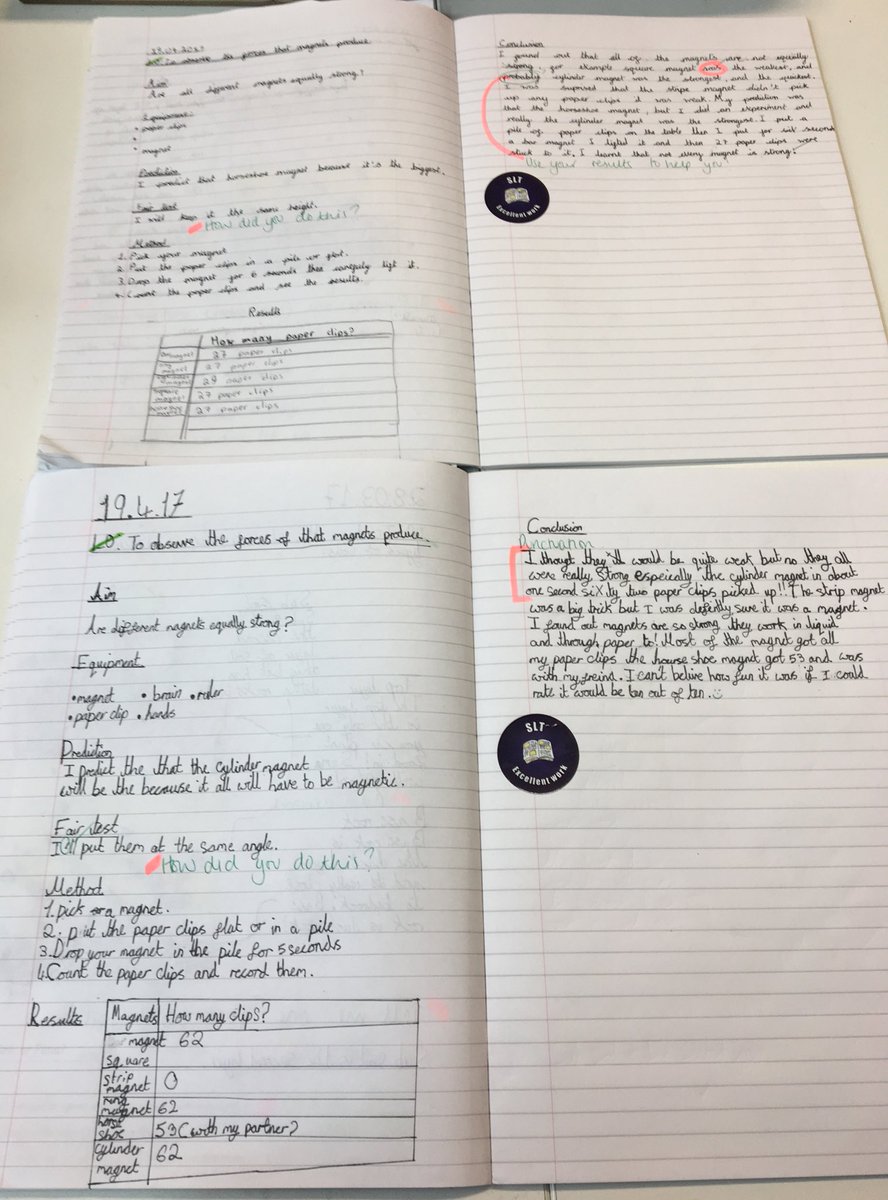 L.O. To observe the forces that magnets produce
Aim
Are all different magnets equally strong?
Equipment
• paper clips
•
• magnet
Prediction
I predict that horseshoe magnet because it's the biggest.
Fair test
I will keep it the same height.
How did you do this?
Method
1. Pick your magnet
2. Put the paper clips in a pile or flat.
3. Drop the magnet for 6 seconds then carefully lift it.
4. Count the paper clips and see the results.
Results
How many paper clips?
magnet 27 paper clips
magnet 27 paper clips
magnet 29 paper clips
square magnet 27 paper clips
27 paper clips
Conclusion
I found out that all of the magnets are not equally
strong, for example square magnet was the weakest, and
probably cylinder magnet was the strongest, and the quickest.
I was suprised that the stripe magnet didn't pick
up any paper clips it was weak. My predition was
that the horseshoe magnet, but I did an experiment and
really the cylinder magnet was the strongest. I put a
pile of paper clips on the table then I put for six seconds
a bar magnet I lifted it and then 27 paper clips were
stuck to it. I learnt that not every magnet is strong.
Use your results to help you
SLT
Excellent work
19.4.17
L.O. To observe the forces of that magnets produce.
Aim
Are different magnets equally strong?
Equipment
• magnet • brain • ruler
• paper clip • hands
Prediction
I predict the that the cylinder magnet
will be the because it all will have to be magnetic.
Fair test
I'll put them at the same angle.
How did you do this?
Method
1. pick or a magnet.
2. put the paper clips flat or in a pile
3. Drop your magnet in the pile for 5 seconds
4. Count the paper clips and record them.
Results
Magnets How many clips?
magnet 62
square
strip magnet 0
ring magnet 62
horse shoe 53 (with my partner)
cylinder magnet 62
Conclusion
Punctuation
I though they'll would be quite weak but no they all
were really strong espeically the cylinder magnet in about
one second sixty two paper clips picked up!! The strip magnet
was a big trick but I was defently sure it was a magnet.
I found out magnets are so strong they work in liquid
and through paper to! Most of the magnet got all
my paper clips the hourse shoe magnt got 53 and was
with my freind. I can't belive how fun it was if I could
rate it would be ten out of ten.
SLT
Excellent work